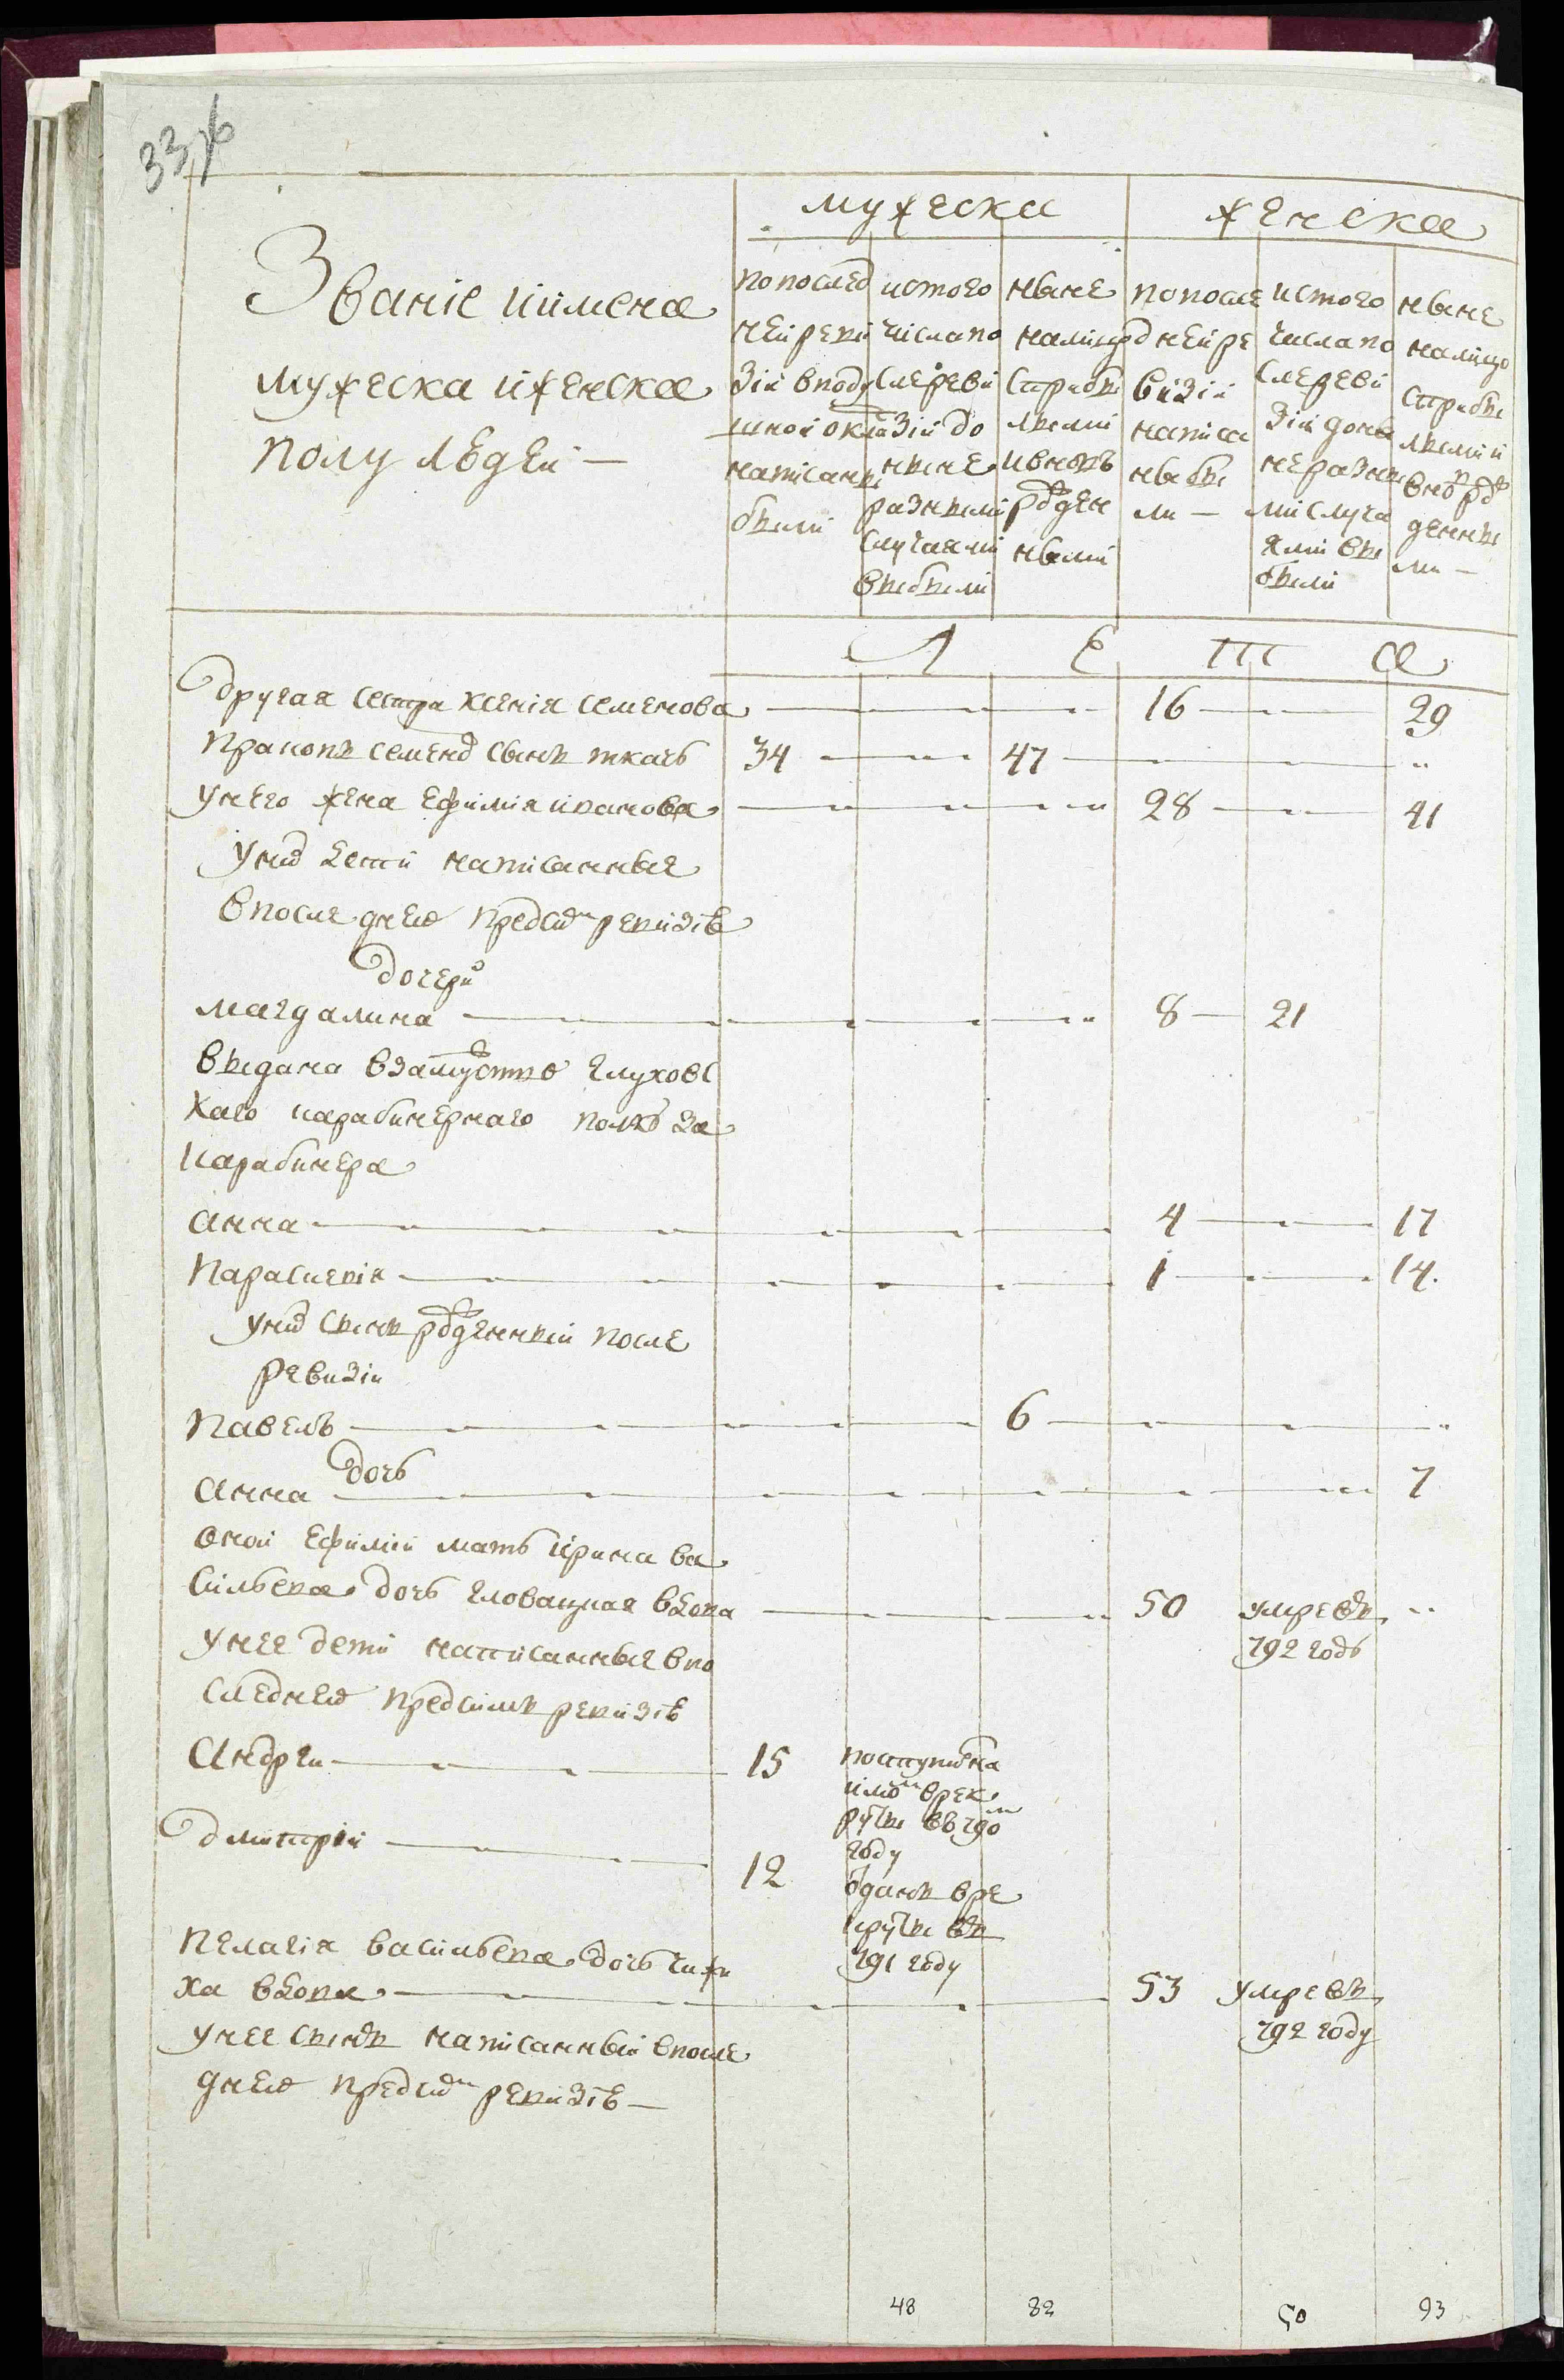 33
мужеска женска
Званіе и имена
мужеска и женска
полу людей —
по послед
ней реви
зіи в поду
шной окла
написаны
были
ис того
числа по
сле реви
зіи до
ныне
разными
случаями
выбыли
ныне
на лицо
с прибы
лыми
и вновь
рожден
ными
по после
дней ре
визіи
написа
ны бы
ли —
ис того
числа по
сле реви
зіи до ны
не разны
ми случа
ями вы
были
ныне
на лицо
с прибы
лыми и
вновь рож
денны
ми —
Л Е Т А
другая сестра ксенія семенова 16 29
Пракопъ семеновъ сынъ ткачь 34 47
у него жена ефимія иванова 28 41
у них дети написанныя
в последней пред симъ ревизіе
дочери
магдалина 8 21
выдана в замужство глуховс
каго карабинернаго полку за
карабинера
анна 4 17
Параскевія 1 14.
у них сынъ рожденный после
ревизіи
Павелъ 6
дочь
анна 7
оной ефиміи мать ирина ва
сильева дочь гловацкая вдова 50 умре въ
792 годе
у нее дети написанныя в по
следней пред симъ ревизіе
Андрей 15 поступил на
имъ в рек
руты въ 790м
году
дмитрій 12 отданъ в ре
круты въ
791 году
Пелагія васильева дочь чижи
ха вдова 53 умре въ
792 году
у нее сынъ написанный в после
дней пред симъ ревизіе —
48 82 50 93